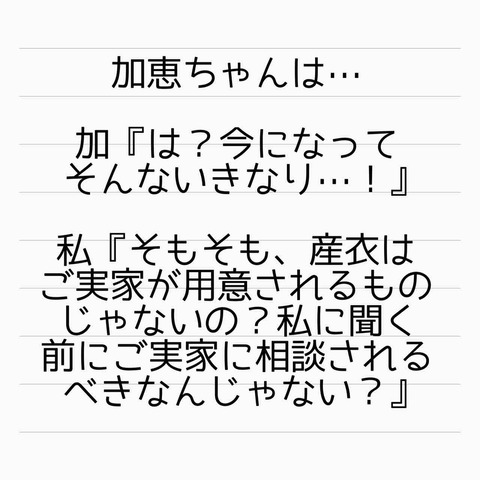 加恵ちゃんは…
加『は？今になって
そんないきなり…！』
私『そもそも、産衣は
ご実家が用意されるもの
じゃないの？私に聞く
前にご実家に相談される
べきなんじゃない？』